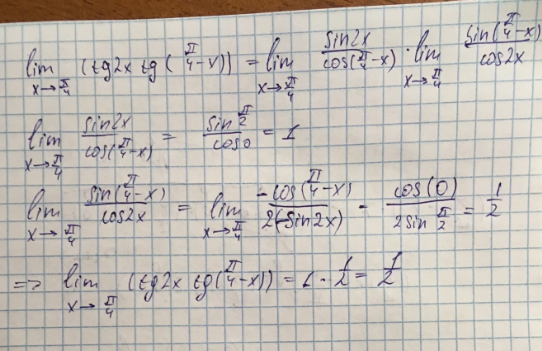 lim x→π/4 (tg2x tg(π/4-x)) = lim x→π/4 sin2x/cos(π/4-x) · lim x→π/4 sin(π/4-x)/cos2x
lim x→π/4 sin2x/cos(π/4-x) = sin π/2/cos0 = 1
lim x→π/4 sin(π/4-x)/cos2x = lim x→π/4 -cos(π/4-x)/2(-sin2x) = cos(0)/2sin π/2 = 1/2
=> lim x→π/4 (tg2x tg(π/4-x)) = 1 · 1/2 = 1/2